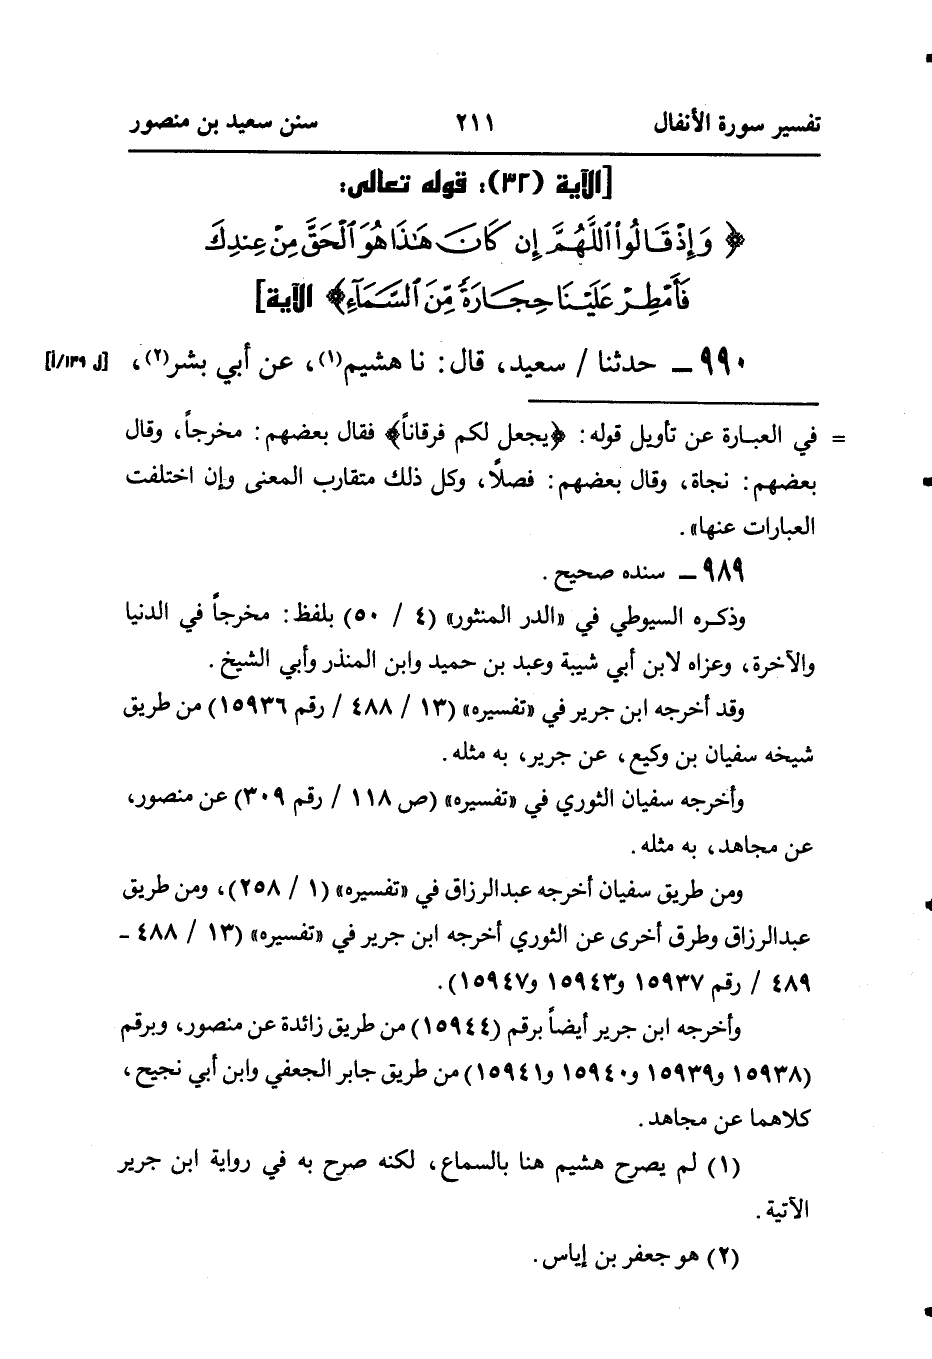 تفسير سورة الأنفال ٢١١ سنن سعيد بن منصور
[الآية (٣٢): قوله تعالى:
﴿ وَإِذْ قَالُوا۟ ٱللَّهُمَّ إِن كَانَ هَٰذَا هُوَ ٱلْحَقَّ مِنْ عِندِكَ
فَأَمْطِرْ عَلَيْنَا حِجَارَةً مِّنَ ٱلسَّمَآءِ﴾ الآية]
٩٩٠ – حدثنا / سعيد، قال: نا هشيم(١)، عن أبي بشر(٢)، [ل ١٣٩/أ]
= في العبارة عن تأويل قوله: ﴿يجعل لكم فرقاناً﴾ فقال بعضهم: مخرجاً، وقال
بعضهم: نجاة، وقال بعضهم: فصلًا، وكل ذلك متقارب المعنى وإن اختلفت
العبارات عنها».
٩٨٩ – سنده صحيح.
وذكره السيوطي في «الدر المنثور» (٤ / ٥٠) بلفظ: مخرجاً في الدنيا
والآخرة، وعزاه لابن أبي شيبة وعبد بن حميد وابن المنذر وأبي الشيخ.
وقد أخرجه ابن جرير في «تفسيره» (١٣ / ٤٨٨ / رقم ١٥٩٣٦) من طريق
شيخه سفيان بن وكيع، عن جرير، به مثله.
وأخرجه سفيان الثوري في «تفسيره» (ص ١١٨ / رقم ٣٠٩) عن منصور،
عن مجاهد، به مثله.
ومن طريق سفيان أخرجه عبدالرزاق في «تفسيره» (١ / ٢٥٨)، ومن طريق
عبدالرزاق وطرق أخرى عن الثوري أخرجه ابن جرير في «تفسيره» (١٣ / ٤٨٨ –
٤٨٩ / رقم ١٥٩٣٧ و١٥٩٤٣ و١٥٩٤٧).
وأخرجه ابن جرير أيضاً برقم (١٥٩٤٤) من طريق زائدة عن منصور، وبرقم
(١٥٩٣٨ و١٥٩٣٩ و١٥٩٤٠ و١٥٩٤١) من طريق جابر الجعفي وابن أبي نجيح،
كلاهما عن مجاهد.
(١) لم يصرح هشيم هنا بالسماع، لكنه صرح به في رواية ابن جرير
الآتية.
(٢) هو جعفر بن إياس.